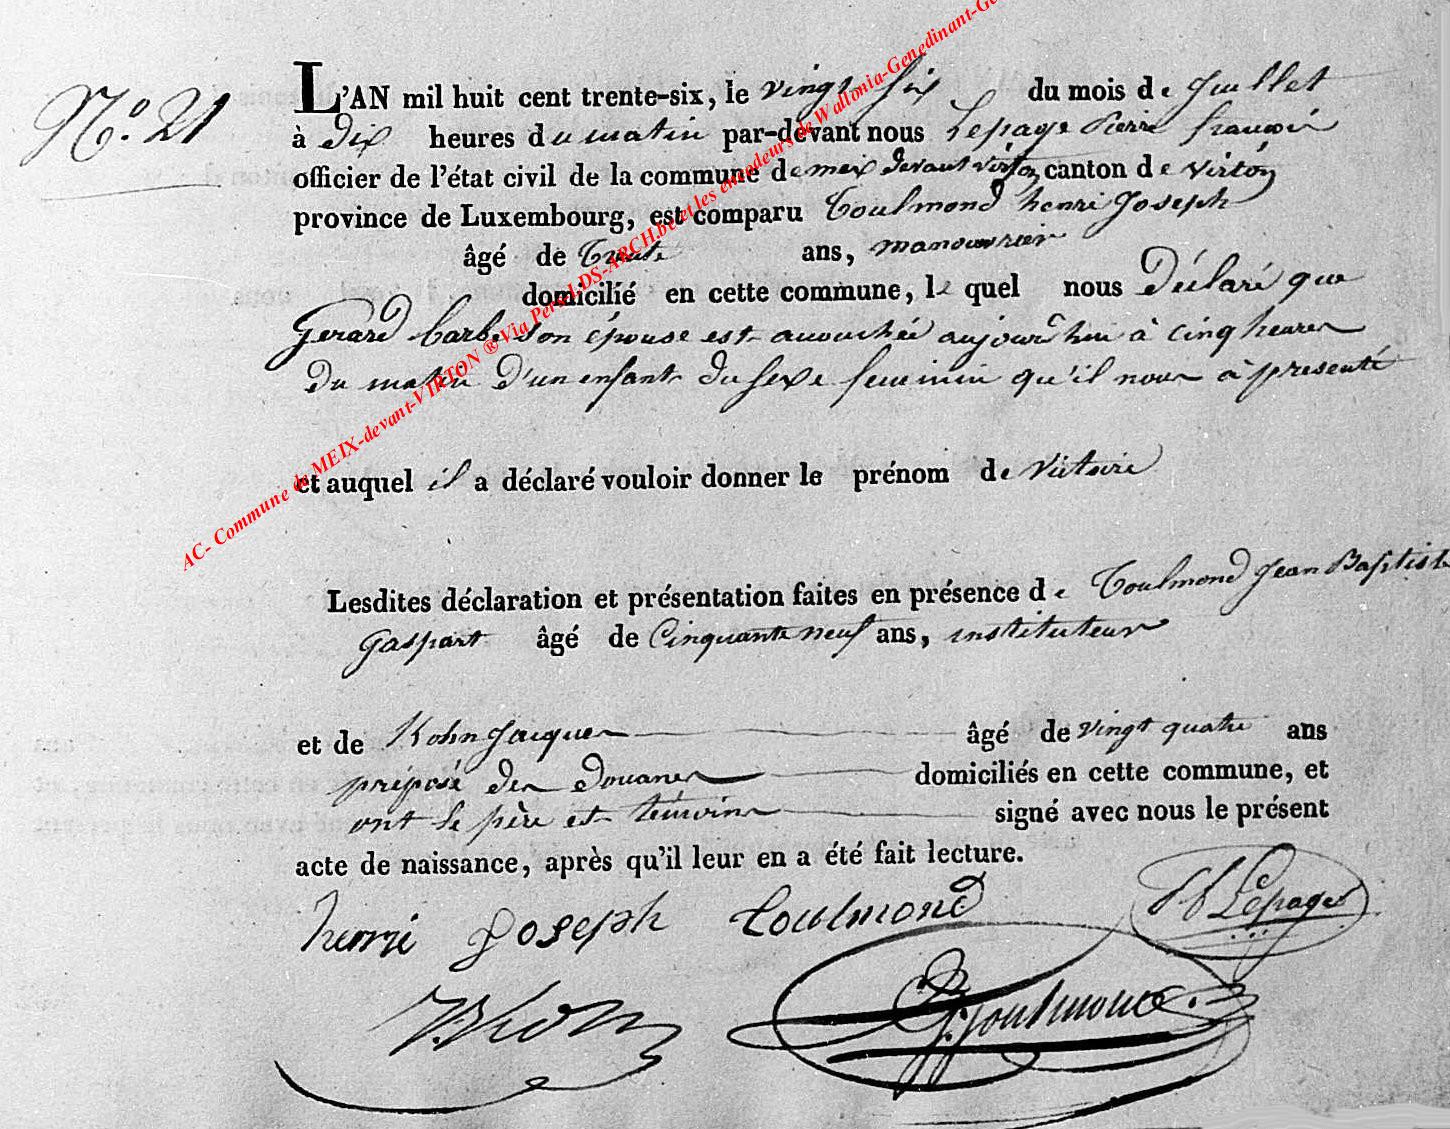 N.o 21
L'AN mil huit cent trente-six, le vingt six du mois de Juillet
à Dix heures du matin par-devant nous Lepage Pierre françois
officier de l'état civil de la commune de meix devant virton canton de virton
province de Luxembourg, est comparu Toulmond henri Joseph
âgé de Trente ans, manouvrier
domicilié en cette commune, le quel nous Déclaré que
Gerard Barbe son épouse est accouchée aujourd'hui à cinq heures
du matin D'un enfant du sexe feminin qu'il nous à présenté
et auquel il a déclaré vouloir donner le prénom de Victoire
Lesdites déclaration et présentation faites en présence de Toulmond Jean Baptiste
Gaspart âgé de Cinquante neuf ans, instituteur
et de Kohn Jacques âgé de vingt quatre ans
préposé des Douanes domiciliés en cette commune, et
ont le père et témoins signé avec nous le présent
acte de naissance, après qu'il leur en a été fait lecture.
henri Joseph Toulmond
Lepage
Toulmond
AC- Commune de MEIX-devant-VIRTON ® Via Perso LDS-ARCH.be et les encodeurs de Wallonia-Genedinant-Ge